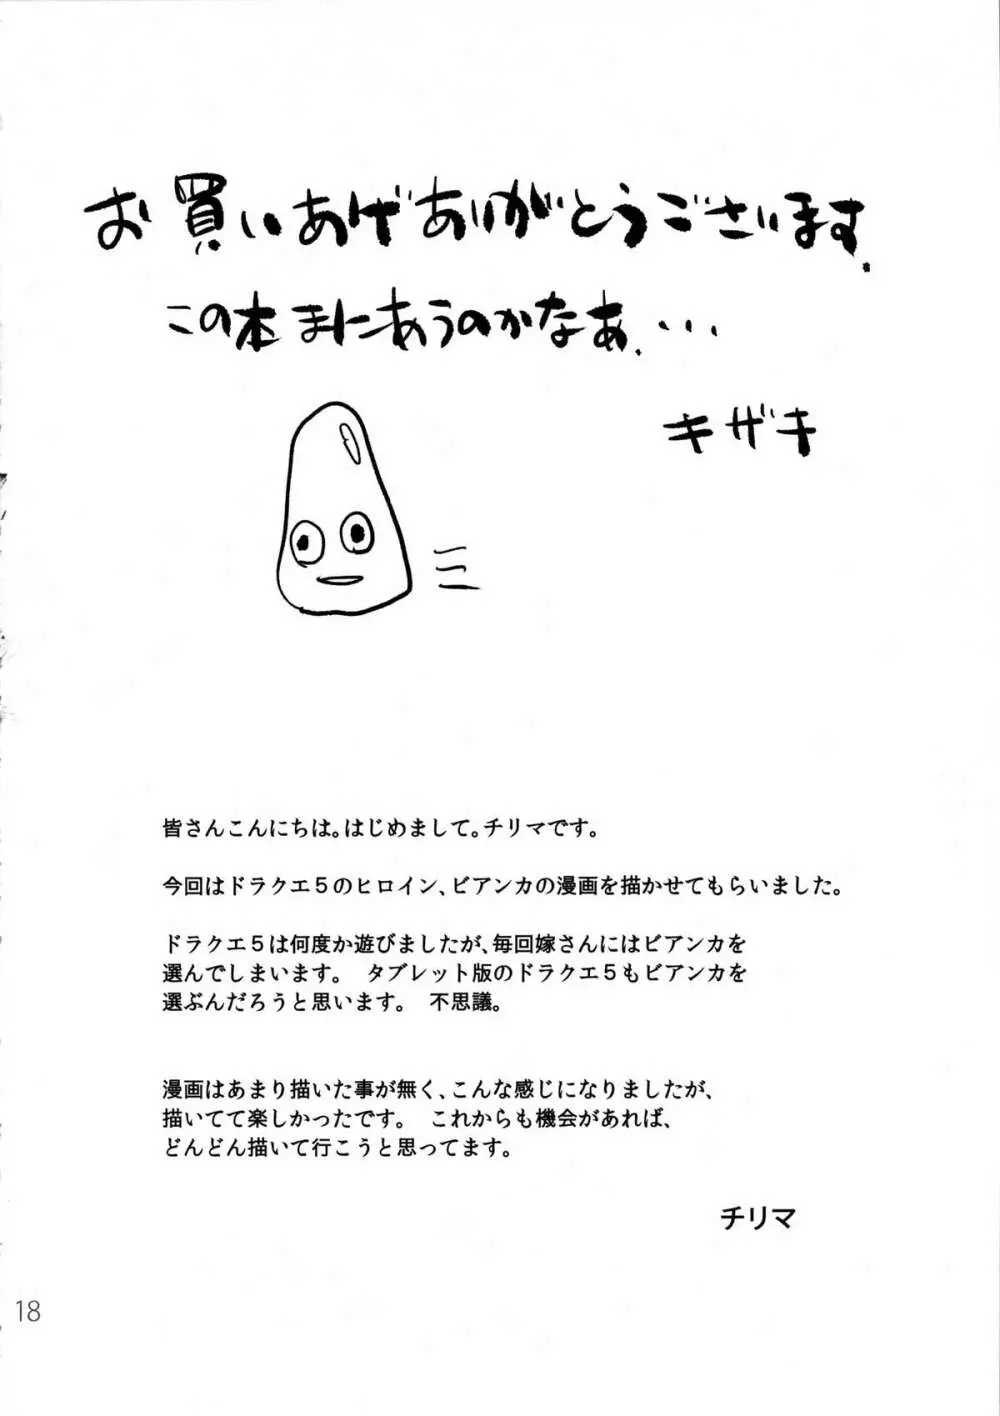 お買いあげありがとうございます.
この本まにあうのかなぁ....
キザキ
皆さんこんにちは。はじめまして。チリマです。
今回はドラクエ5のヒロイン、ビアンカの漫画を描かせてもらいました。
ドラクエ5は何度か遊びましたが、毎回嫁さんにはビアンカを
選んでしまいます。　タブレット版のドラクエ5もビアンカを
選ぶんだろうと思います。　不思議。
漫画はあまり描いた事が無く、こんな感じになりましたが、
描いてて楽しかったです。　これからも機会があれば、
どんどん描いて行こうと思ってます。
チリマ
18